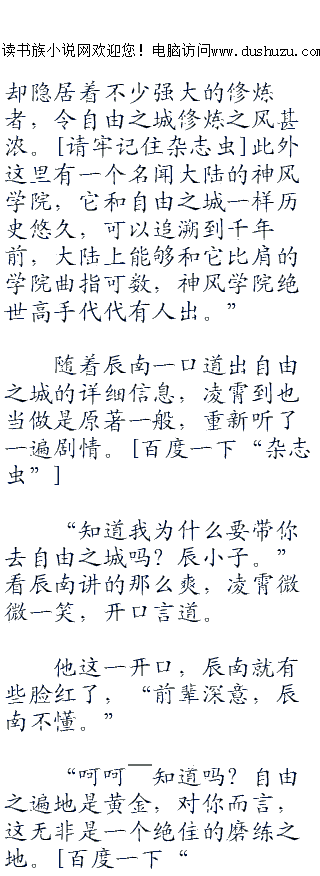 读书族小说网欢迎您！电脑访问www.dushuzu.com
却隐居着不少强大的修炼
者，令自由之城修炼之风甚
浓。[请牢记住杂志虫]此外
这里有一个名闻大陆的神风
学院，它和自由之城一样历
史悠久，可以追溯到千年
前，大陆上能够和它比肩的
学院曲指可数，神风学院绝
世高手代代有人出。”
随着辰南一口道出自由
之城的详细信息，凌霄到也
当做是原著一般，重新听了
一遍剧情。[百度一下“杂志
虫”]
“知道我为什么要带你
去自由之城吗？辰小子。”
看辰南讲的那么爽，凌霄微
微一笑，开口言道。
他这一开口，辰南就有
些脸红了，“前辈深意，辰
南不懂。”
“呵呵￣知道吗？自由
之遍地是黄金，对你而言，
这无非是一个绝佳的磨练之
地。[百度一下“